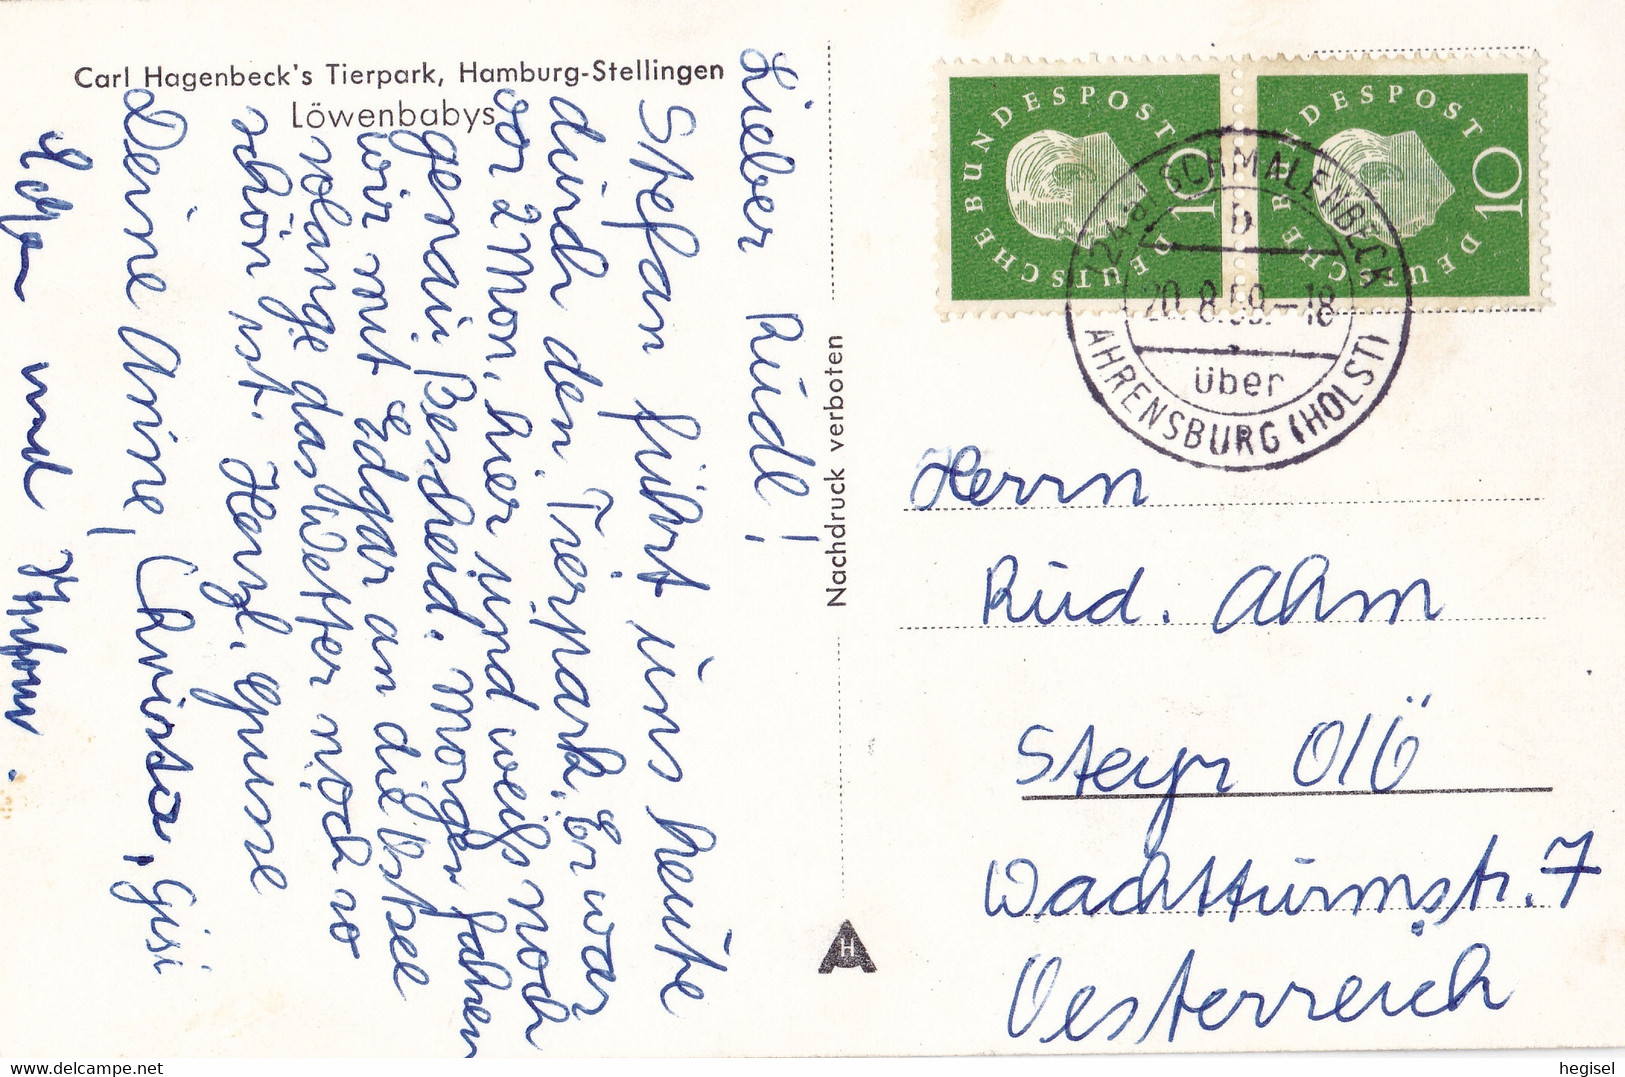 Carl Hagenbeck's Tierpark, Hamburg-Stellingen
Löwenbabys
Lieber Rudl!
Stefan führt uns heute
durch den Tierpark. Er war
vor 2 Mon. hier und weiß noch
genau Bescheid. Morgen fahren
wir mit Edgar an die Ostsee
solange das Wetter noch so
schön ist. Herzl. Grüsse
Deine Anine, Christa, Gisi
und
Nachdruck verboten
H
DEUTSCHE BUNDESPOST
10
DEUTSCHE BUNDESPOST
10
SCHMALENBECK
b
20.8.59.-18
über
AHRENSBURG (HOLST)
Herrn
Rud. Ahm
Steyr O/Ö
Wachtturmstr. 7
Oesterreich
hegisel